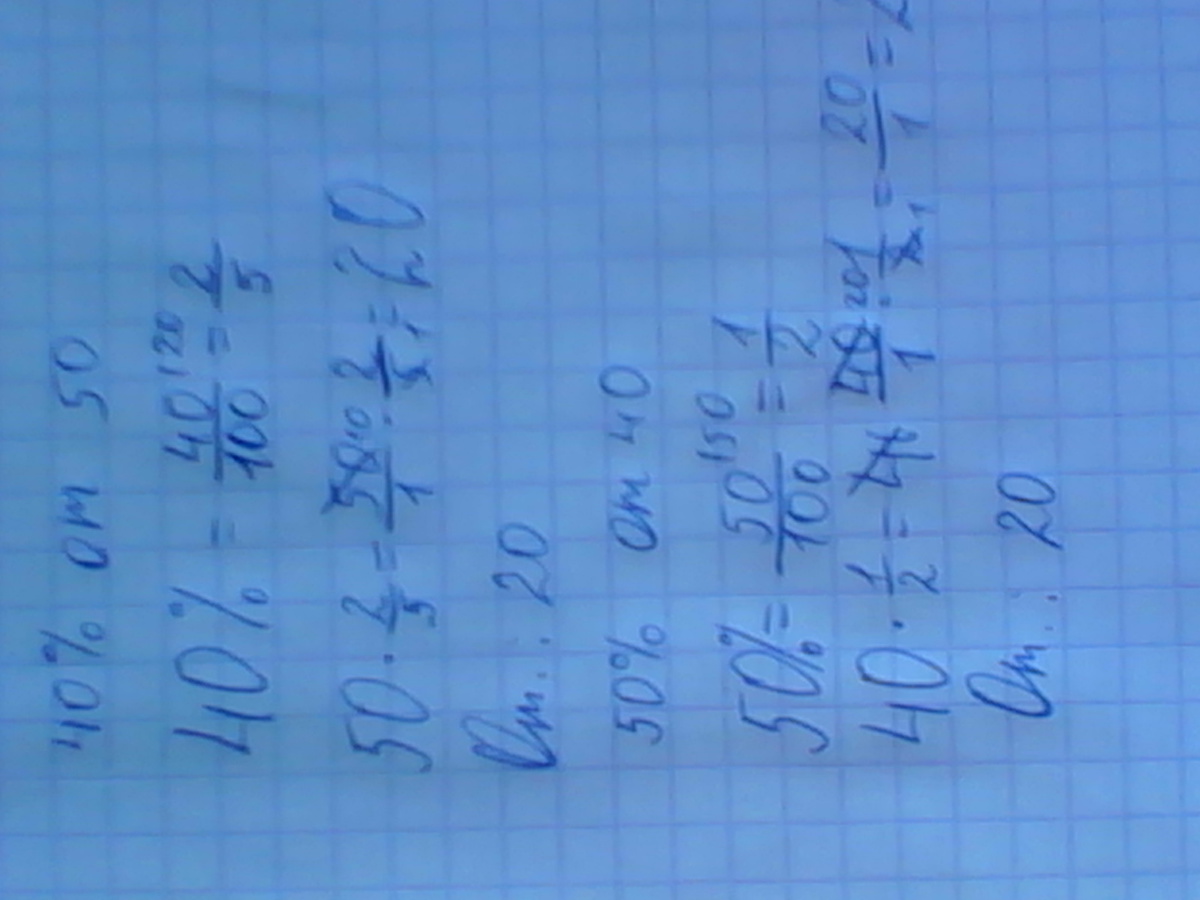 40% от 50
40% = 40/100 |20 = 2/5
50 · 2/5 = 50 10/1 · 2/5 1 = 20
От.: 20
50% от 40
50% = 50/100 |50 = 1/2
40 · 1/2 = 40 20/1 · 1/2 1 = 20/1 =
От.: 20